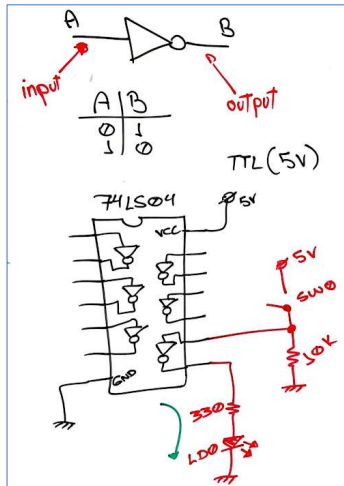 A
B
input
output
A B
0 1
1 0
TTL (5V)
74LS04
VCC
5V
5V
SW0
10K
GND
330
LD0